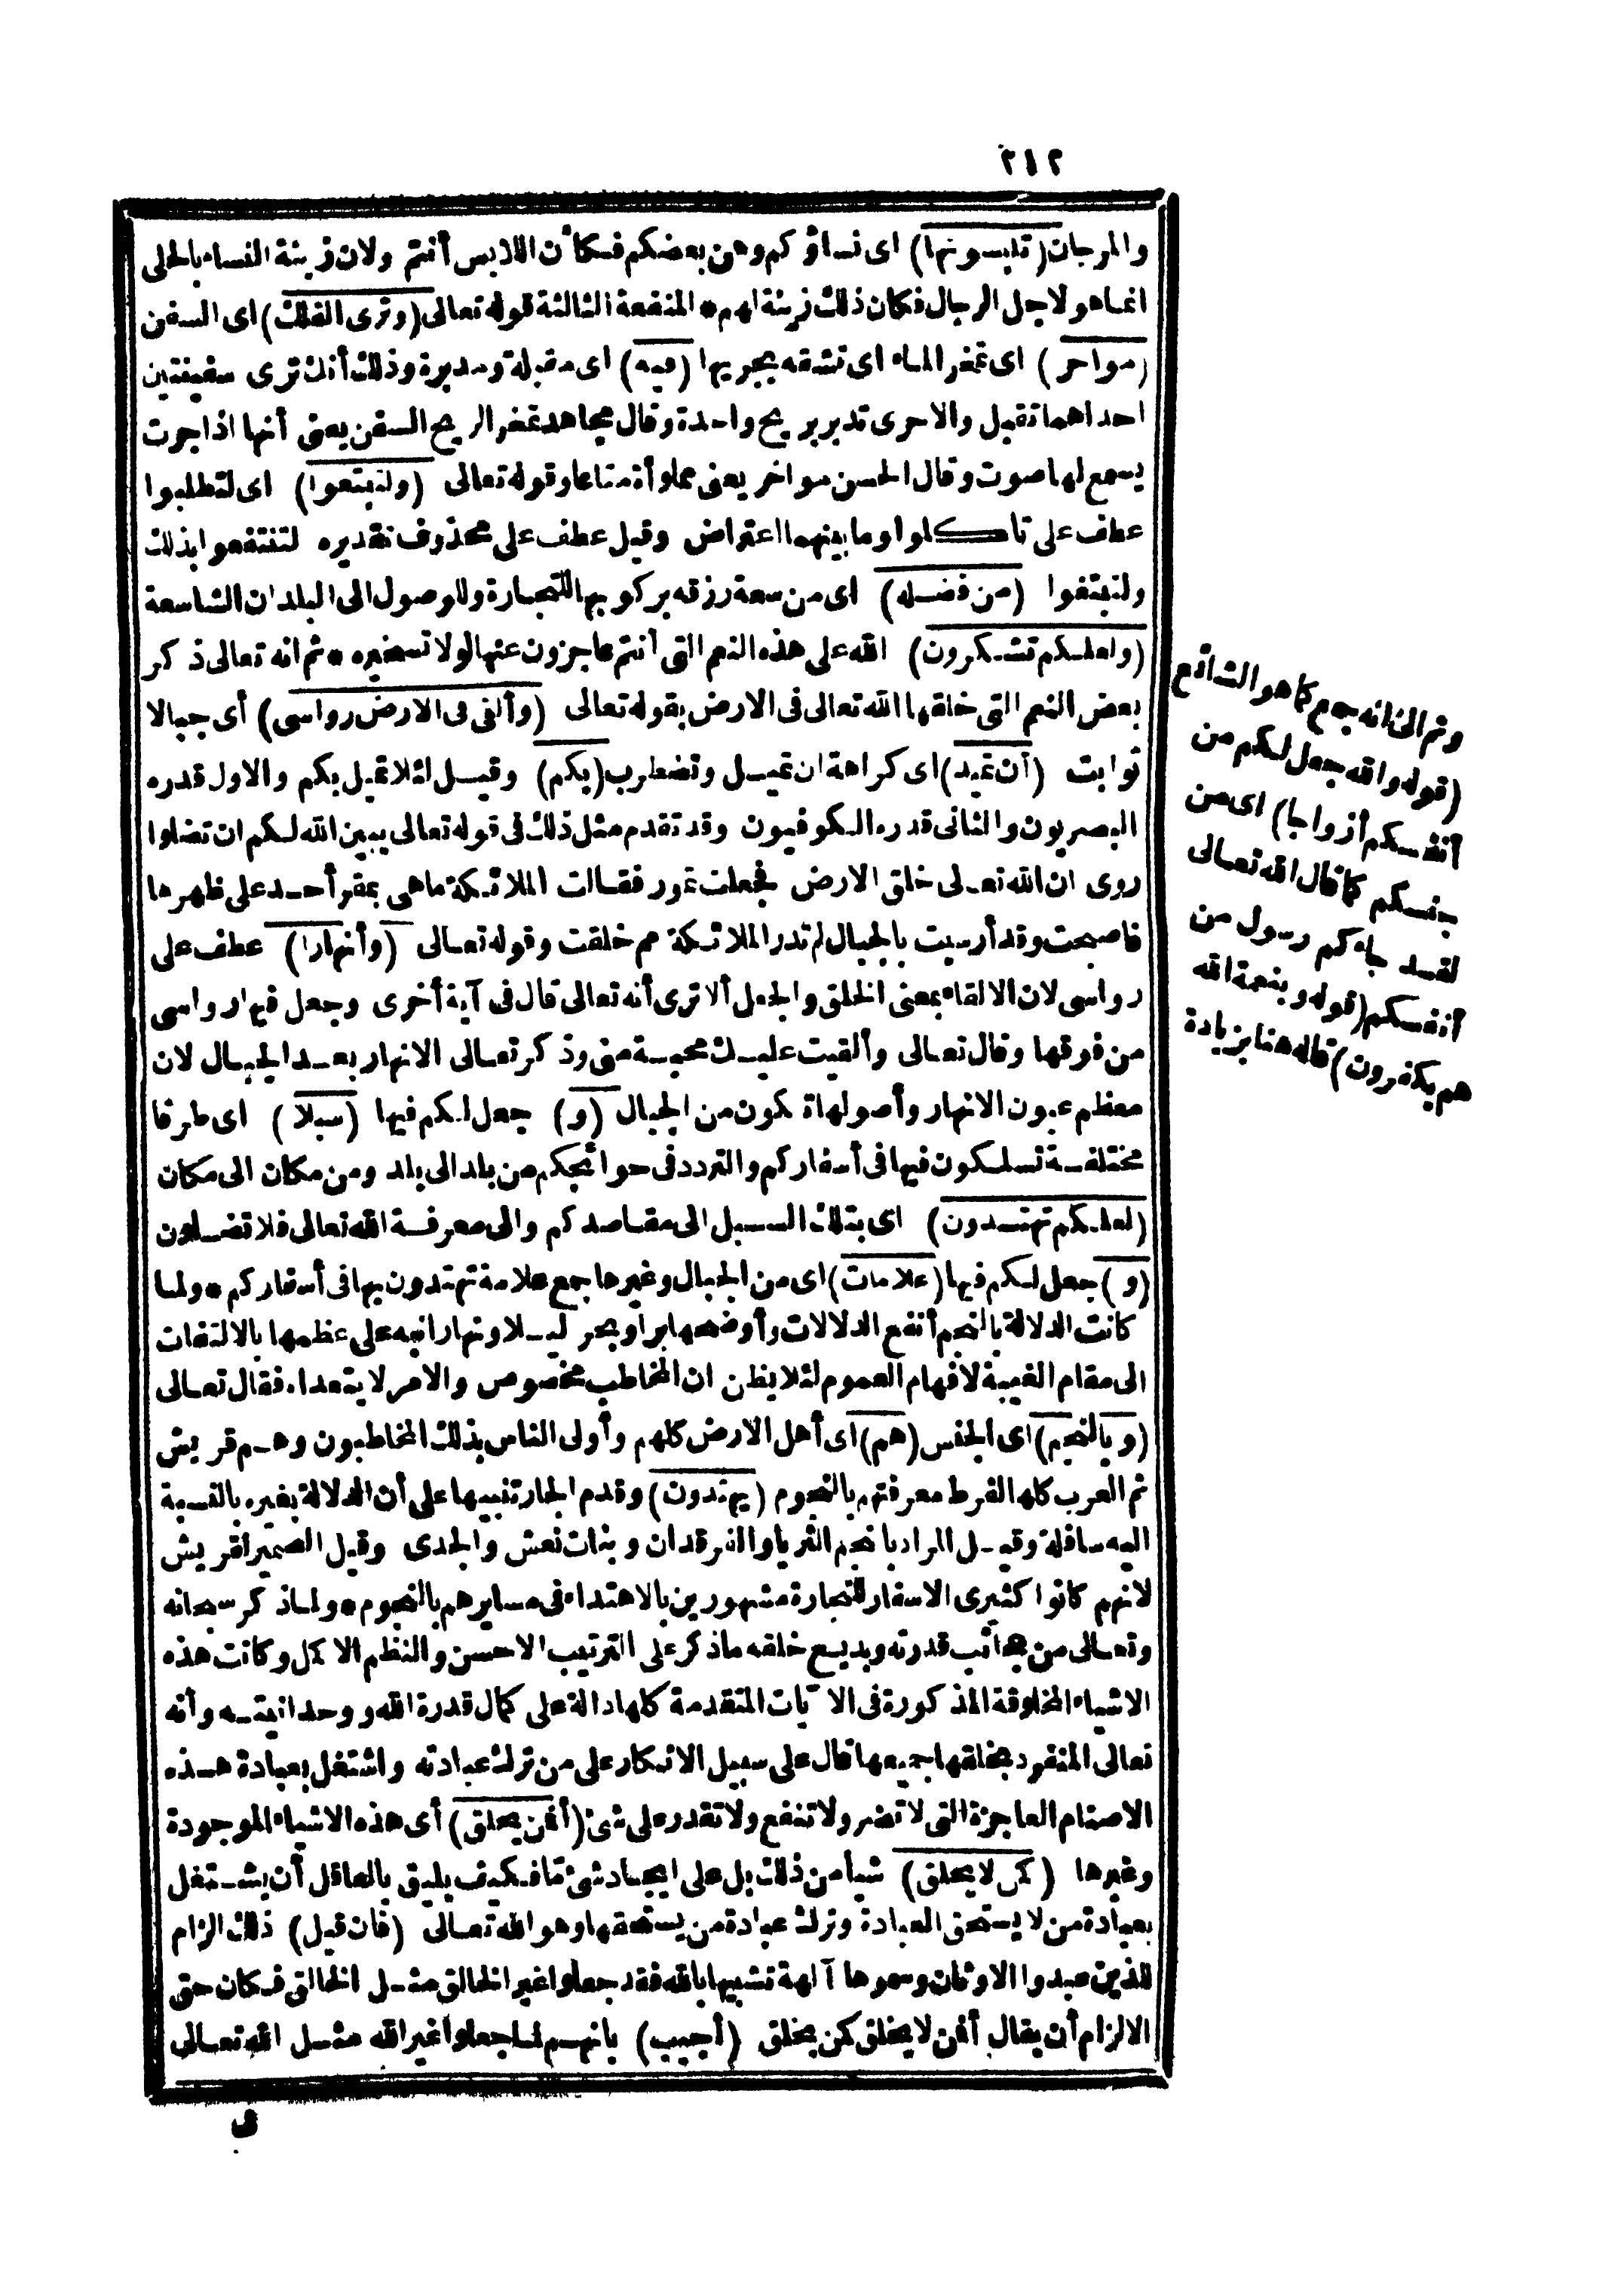 ٢١٢
والمرجان (تلبسونها) اى نساؤكم وهن بعضكم فكأن اللابس أنتم ولان زينة النساء بالحلى
انما هو لاجل الرجال فكان ذلك زينة لهم * المنفعة الثالثة قوله تعالى (وترى الفلك) اى السفن
(مواخر) اى تمخر الماء اى تشقه بجريها (فيه) اى مقبلة ومدبرة وذلك أنك ترى سفينتين
احداهما تقبل والاخرى تدبر بريح واحدة وقال مجاهد تمخر الريح السفن يعنى أنها اذا جرت
يسمع لها صوت وقال الحسن مواخر يعنى مملوأة متاعا وقوله تعالى (ولتبتغوا) اى لتطلبوا
عطف على تأكلوا وما بينهما اعتراض وقيل عطف على محذوف تقديره لتنتفعوا بذلك
ولتبتغوا (من فضله) اى من سعة رزقه بركوبها للتجارة وللوصول الى البلدان الشاسعة
(ولعلكم تشكرون) الله على هذه النعم التى أنتم عاجزون عنها لولا تسخيره * ثم انه تعالى ذكر
بعض النعم التى خلقها الله تعالى فى الارض بقوله تعالى (وألقى فى الارض رواسى) أى جبالا
ثوابت (أن تميد) اى كراهة ان تميل وتضطرب (بكم) وقيل لئلا تميل بكم والاول قدره
البصريون والثانى قدره الكوفيون وقد تقدم مثل ذلك فى قوله تعالى يبين الله لكم ان تضلوا
روى ان الله تعالى خلق الارض فجعلت تمور فقالت الملائكة ما هى بمقر أحد على ظهرها
فاصبحت وقد أرسيت بالجبال لم تدر الملائكة مم خلقت وقوله تعالى (وأنهارا) عطف على
رواسى لان الالقاء بمعنى الخلق والجعل ألا ترى أنه تعالى قال فى آية أخرى وجعل فيها رواسى
من فوقها وقال تعالى وألقيت عليك محبة منى وذكر تعالى الانهار بعد الجبال لان
معظم عيون الانهار وأصولها تكون من الجبال (و) جعل لكم فيها (سبلا) اى طرقا
مختلفة تسلكون فيها فى أسفاركم والتردد فى حوائجكم من بلد الى بلد ومن مكان الى مكان
(لعلكم تهتدون) اى بتلك السبل الى مقاصدكم والى معرفة الله تعالى فلا تضلون
(و) جعل لكم فيها (علامات) اى من الجبال وغيرها جمع علامة تهتدون بها فى أسفاركم * ولما
كانت الدلالة بالنجم أنفع الدلالات وأوضحها برا وبحرا ليلا ونهارا نبه على عظمها بالالتفات
الى مقام الغيبة لافهام العموم لئلا يظن ان المخاطب مخصوص والامر لا يتعداه فقال تعالى
(وبالنجم) اى الجنس (هم) اى أهل الارض كلهم وأولى الناس بذلك المخاطبون وهم قريش
ثم العرب كلها لفرط معرفتهم بالنجوم (يهتدون) وقدم الجار تنبيها على أن الدلالة بغيره بالنسبة
اليه سافلة وقيل المراد بالنجم الثريا والفرقدان وبنات نعش والجدى وقيل الضمير لقريش
لانهم كانوا كثيرى الاسفار للتجارة مشهورين بالاهتداء فى مسايرهم بالنجوم * ولما ذكر سبحانه
وتعالى من عجائب قدرته وبديع خلقه ما ذكر على الترتيب الاحسن والنظم الاكمل وكانت هذه
الاشياء المخلوقة المذكورة فى الآيات المتقدمة كلها دالة على كمال قدرة الله ووحدانيته وأنه
تعالى المنفرد بخلقها جميعها قال على سبيل الانكار على من ترك عبادته واشتغل بعبادة هذه
الاصنام العاجزة التى لا تضر ولا تنفع ولا تقدر على شئ (أفمن يخلق) أى هذه الاشياء الموجودة
وغيرها (كمن لا يخلق) شيأ من ذلك بل على ايجاد شئ ما فكيف يليق بالعاقل أن يشتغل
بعبادة من لا يستحق العبادة وترك عبادة من يستحقها وهو الله تعالى (فان قيل) ذلك الزام
للذين عبدوا الاوثان وسموها آلهة تشبيها بالله فقد جعلوا غير الخالق مثل الخالق فكان حق
الالزام أن يقال أفمن لا يخلق كمن يخلق (أجيب) بانهم لما جعلوا غير الله مثل الله تعالى
فى
وثم الى انه جمع كما هو الشائع
(قوله والله جعل لكم من
أنفسكم أزواجا) اى من
جنسكم كما قال الله تعالى
لقد جاءكم رسول من
أنفسكم (قوله وبنعمة الله
هم يكفرون) قاله هنا بزيادة